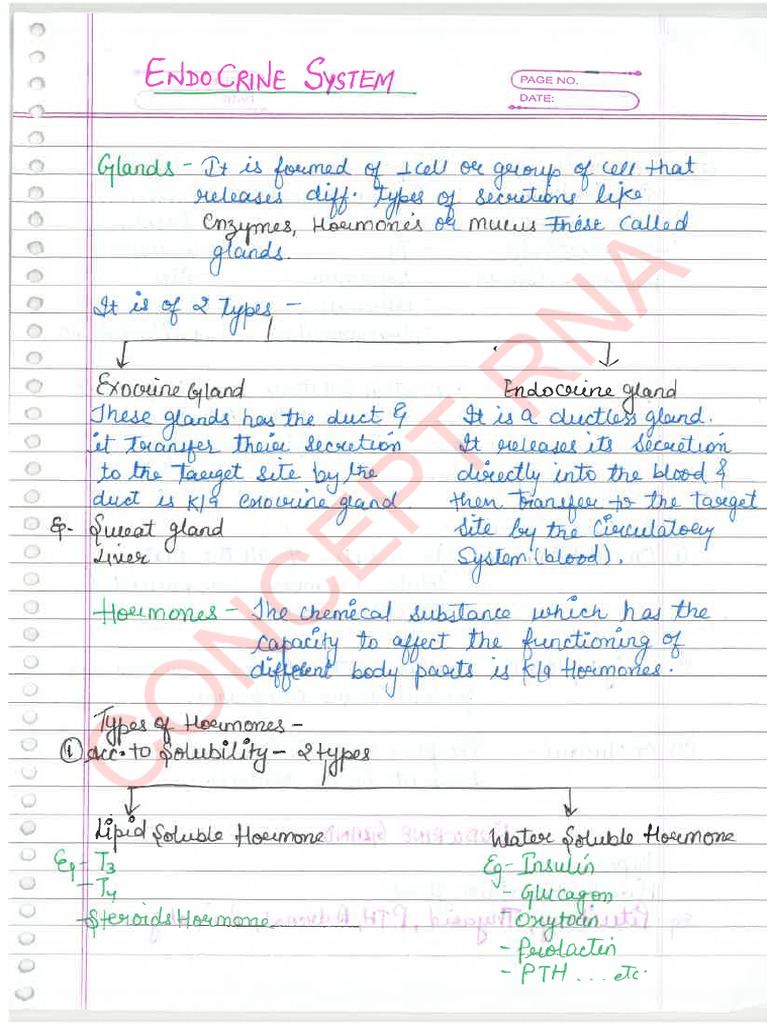 ENDOCRINE SYSTEM
PAGE NO.
DATE:
Glands - It is formed of 1 cell or group of cell that
releases diff. types of secretions like
Enzymes, Hormones or mucus these called
glands.
It is of 2 Types -
Exocrine Gland
These glands has the duct &
it transfer their secretion
to the target site by the
duct is K/a exocrine gland
Eg- Sweat gland
Liver
Endocrine gland
It is a ductless gland.
It releases its secretion
directly into the blood &
then transfer to the target
site by the circulatory
system (blood).
Hormones - The chemical substance which has the
capacity to affect the functioning of
different body parts is K/a Hormones.
Types of Hormones -
① Acc. to Solubility - 2 types
Lipid Soluble Hormone
Eg - T3
- T4
- Steroids Hormone
Water Soluble Hormone
Eg - Insulin
- Glucagon
- Oxytocin
- Prolactin
- PTH ... etc.
CONCEPT RNA